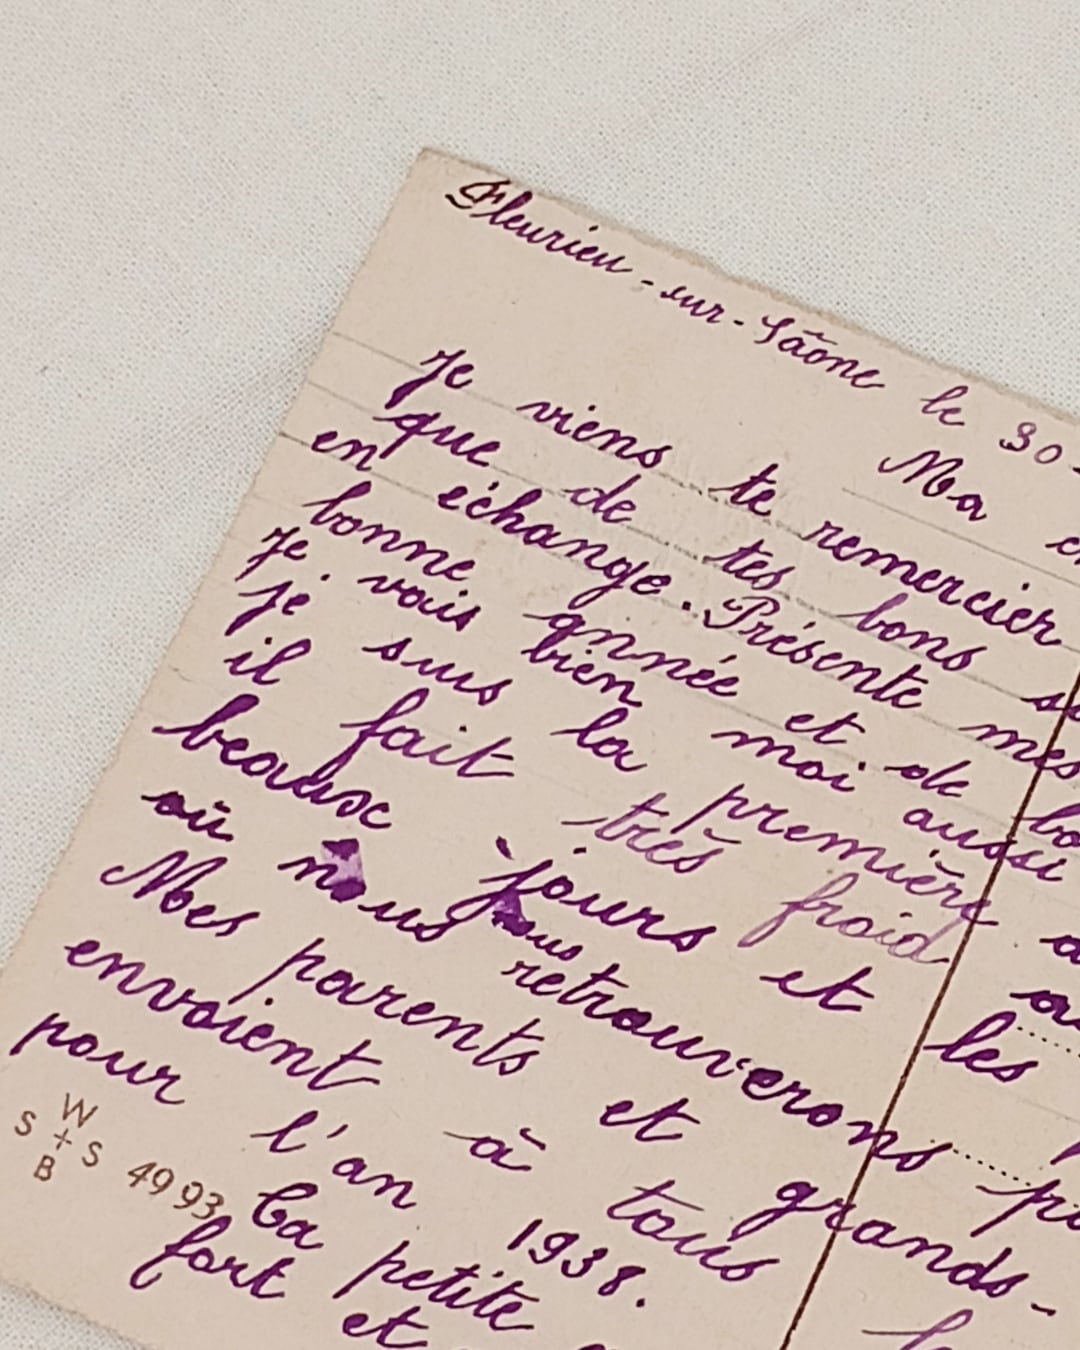 Fleurieu-sur-Saône le 30-
Ma
Je viens te remercier
que de tes bons
en échange. Présente mes
bonne année et de
Je vais bien moi aussi
je suis la première
il fait très froid
beaux jours et les
où nous nous retrouverons
Mes parents et grands-
envoient à tous
pour l'an 1938.
Ta petite
fort et
W
S + S
B
4993